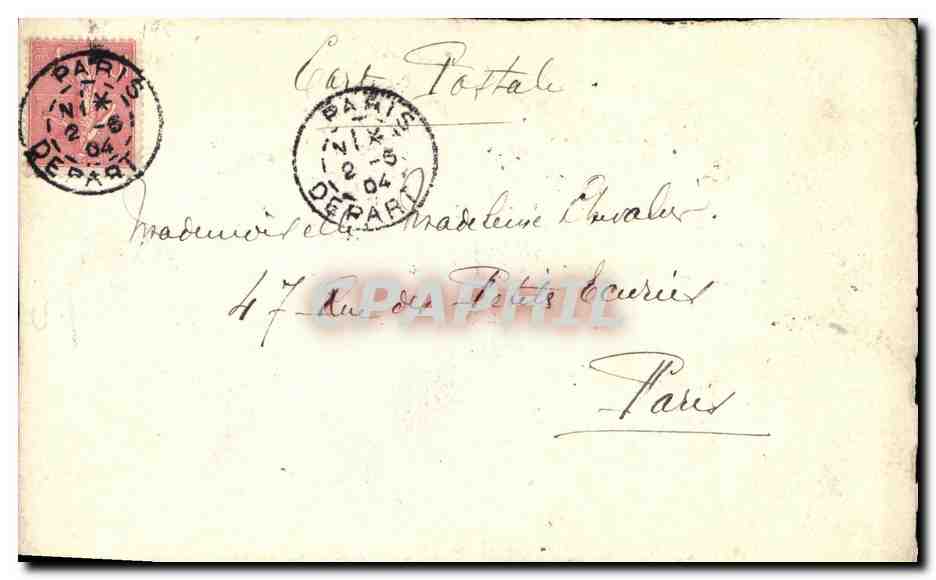 Carte Postale.
PARIS
N1 *
2 -6
04
DEPART
PARIS
N1 *
2 -6
04
DEPART
Mademoiselle Madeleine Chevalier.
47 Rue des Petites Ecuries
CPAPHIL
Paris